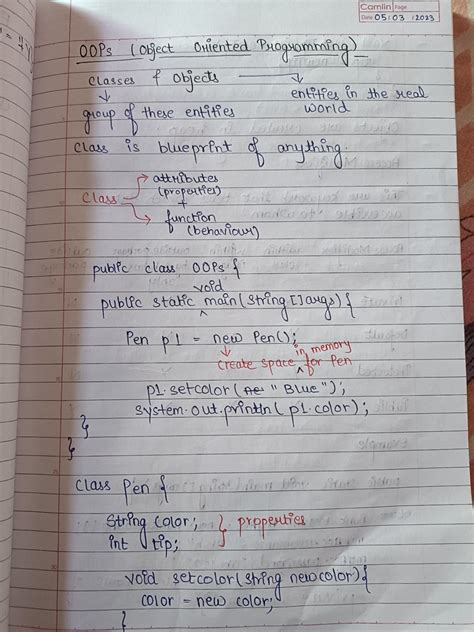 Camlin Page
Date 05/03/2023
OOPs (Object Oriented Programming)
Classes & Objects
entities in the real world
group of these entities
Class is blueprint of anything.
Class
attributes
(properties)
+
function
(behaviour)
public class OOPs {
void
public static main(String []args) {
Pen p1 = new Pen();
create space in memory for Pen
p1.setcolor( "Blue");
System.out.println(p1.color);
}
}
class Pen {
String color; } properties
int tip;
void setcolor(String newcolor){
color = new color;
}